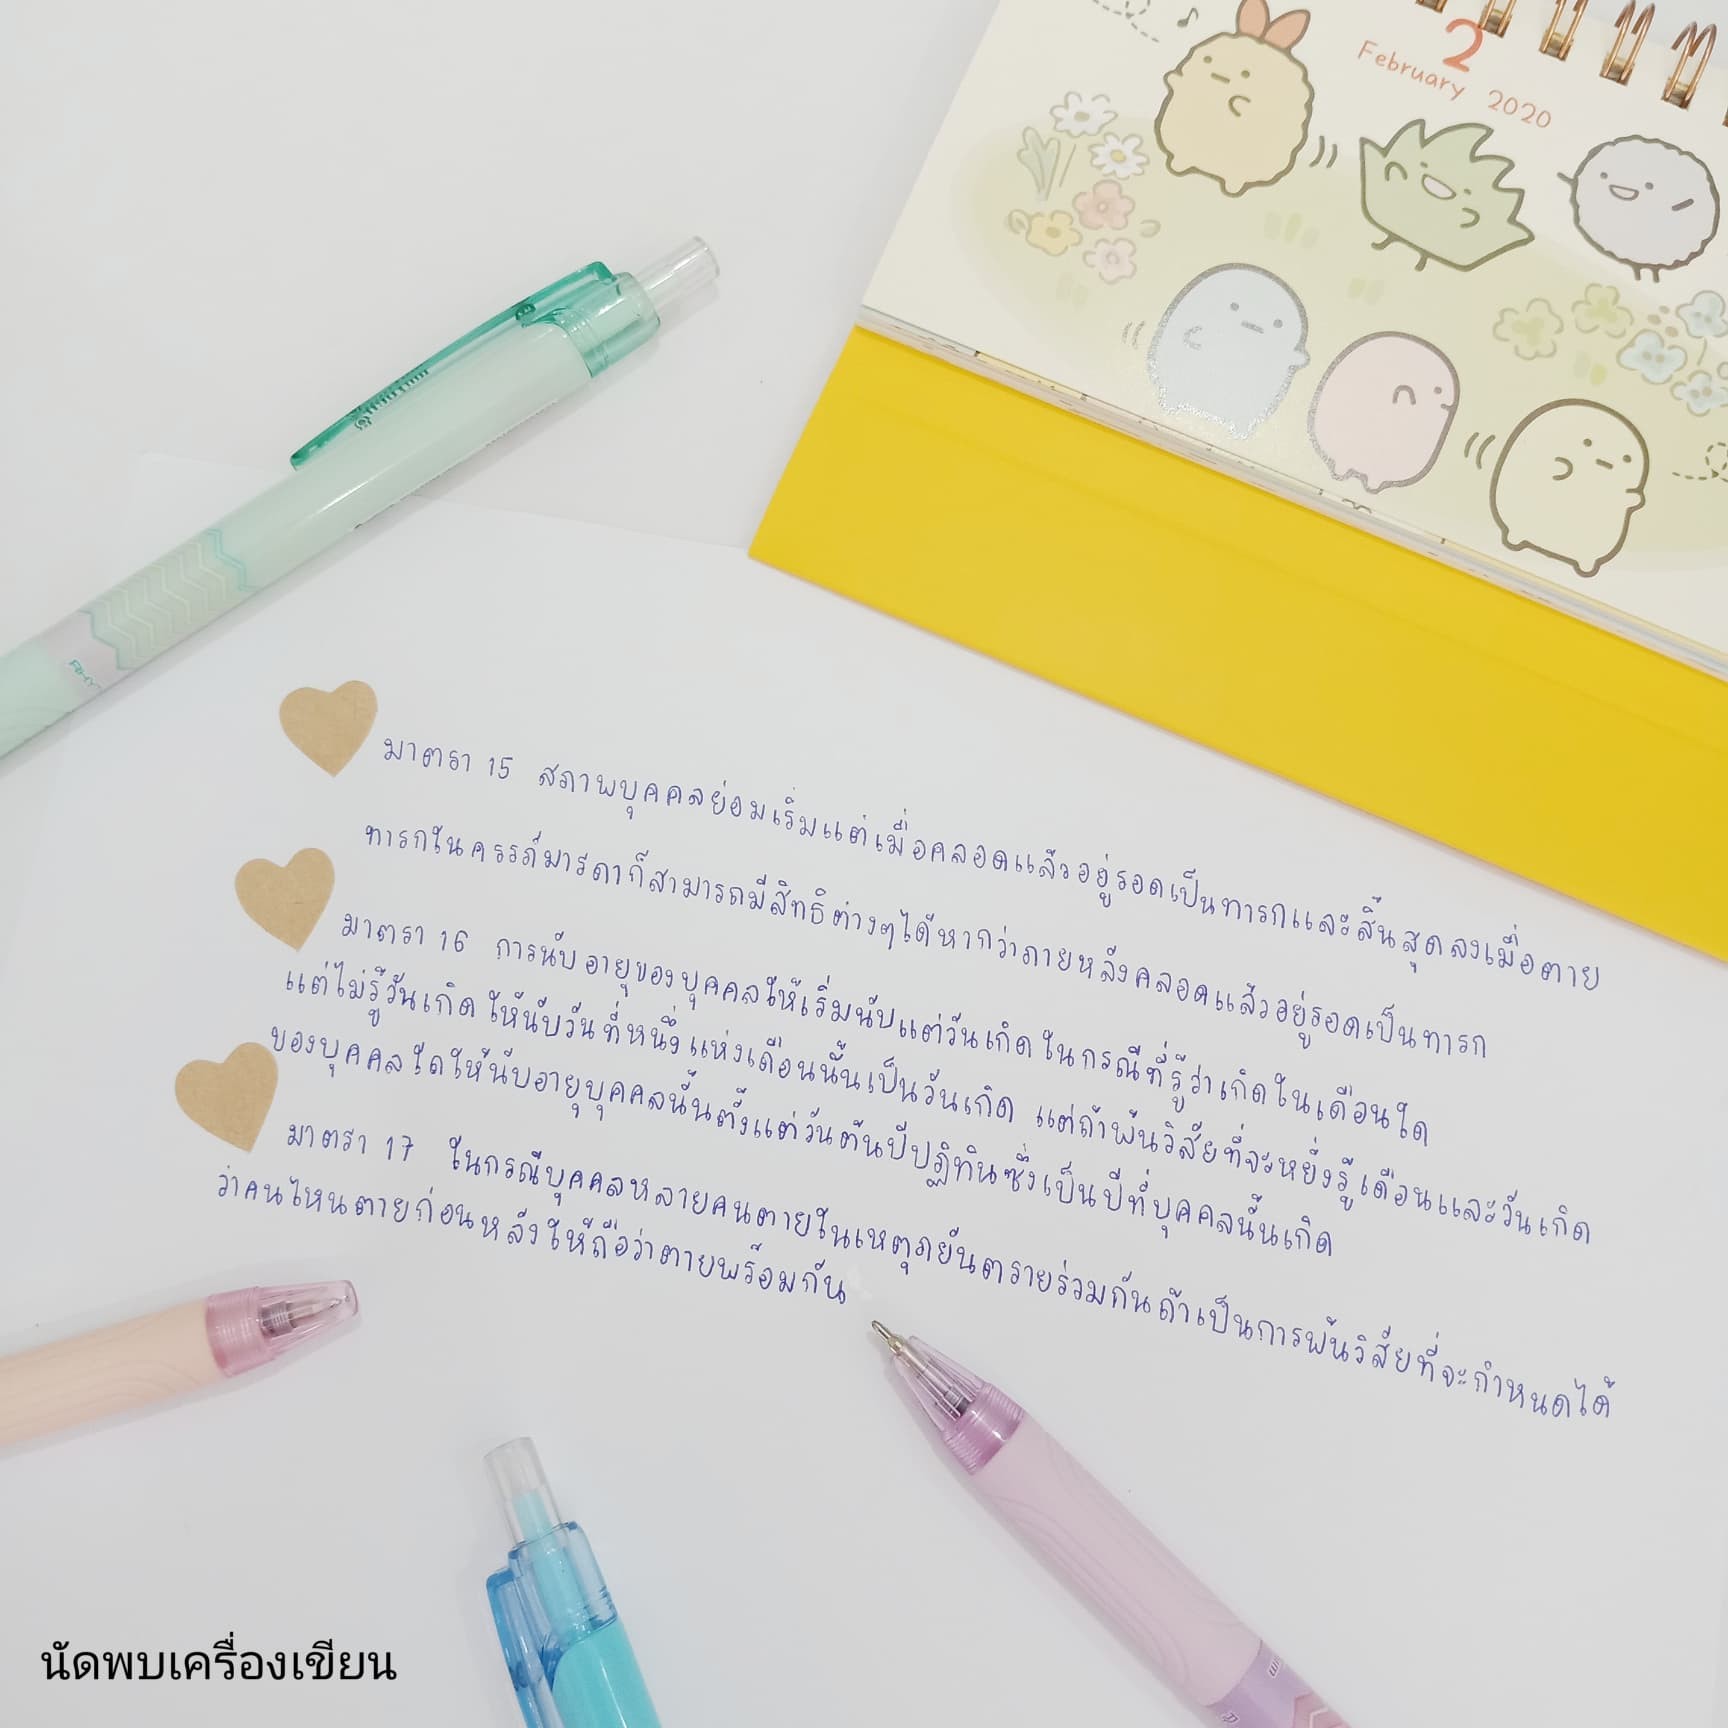 2
February 2020
มาตรา 15 สภาพบุคคลย่อมเริ่มแต่เมื่อคลอดแล้วอยู่รอดเป็นทารกและสิ้นสุดลงเมื่อตาย
ทารกในครรภ์มารดาก็สามารถมีสิทธิต่างๆได้หากว่าภายหลังคลอดแล้วอยู่รอดเป็นทารก
มาตรา 16 การนับอายุของบุคคลให้เริ่มนับแต่วันเกิดในกรณีที่รู้ว่าเกิดในเดือนใด
แต่ไม่รู้วันเกิดให้นับวันที่หนึ่งแห่งเดือนนั้นเป็นวันเกิด แต่ถ้าพ้นวิสัยที่จะหยั่งรู้เดือนและวันเกิด
ของบุคคลใดให้นับอายุบุคคลนั้นตั้งแต่วันต้นปีปฏิทินซึ่งเป็นปีที่บุคคลนั้นเกิด
มาตรา 17 ในกรณีบุคคลหลายคนตายในเหตุภยันตรายร่วมกันถ้าเป็นการพ้นวิสัยที่จะกำหนดได้
ว่าคนไหนตายก่อนหลังให้ถือว่าตายพร้อมกัน
นัดพบเครื่องเขียน